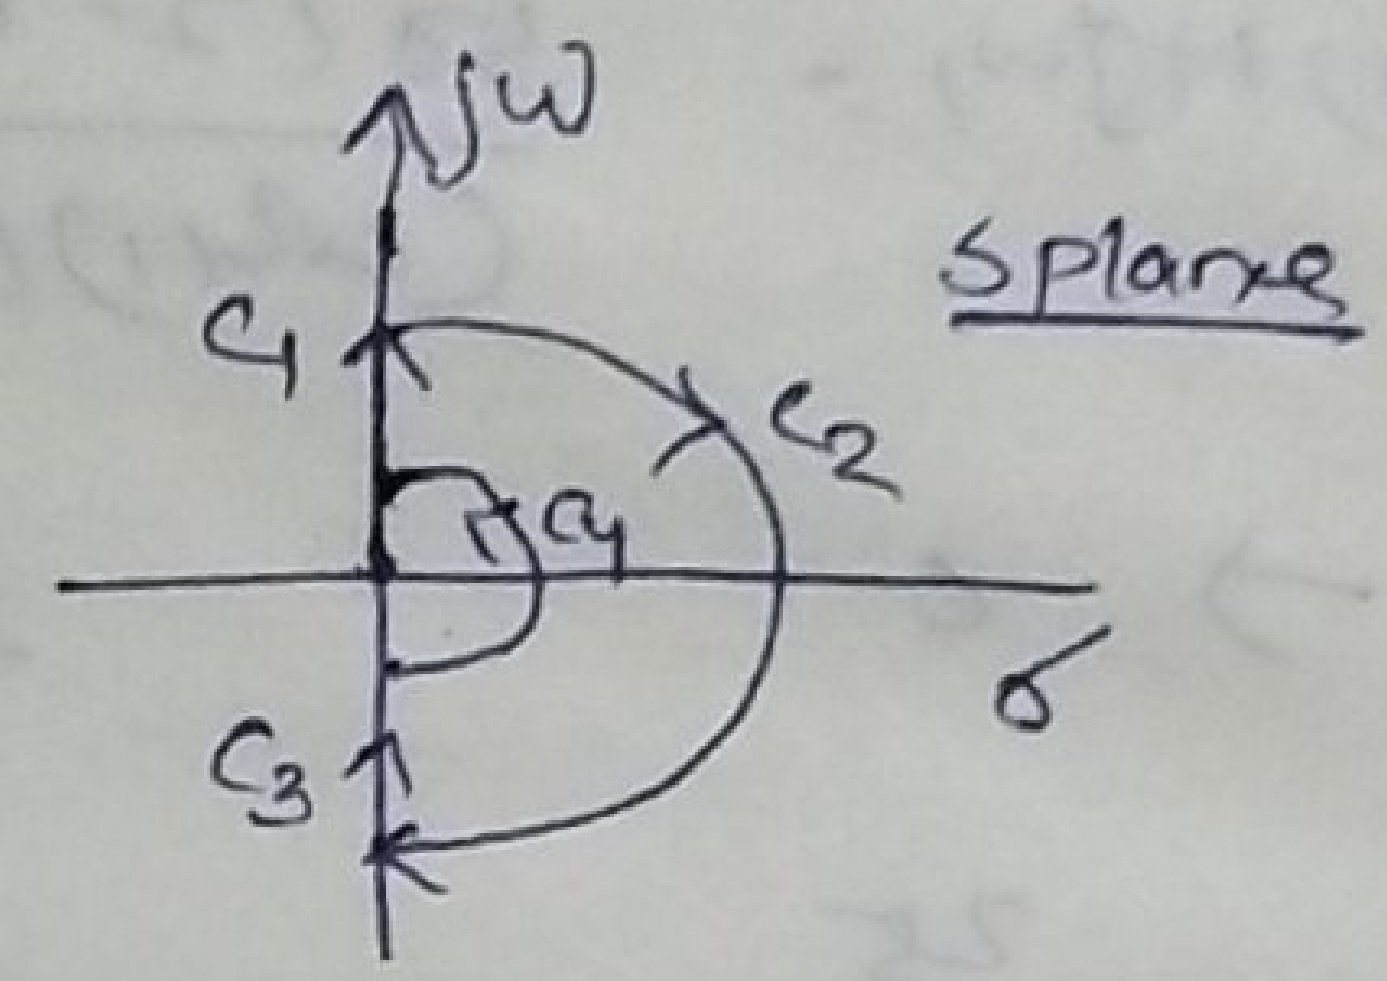 jw
s plane
C1
C2
C4
σ
C3